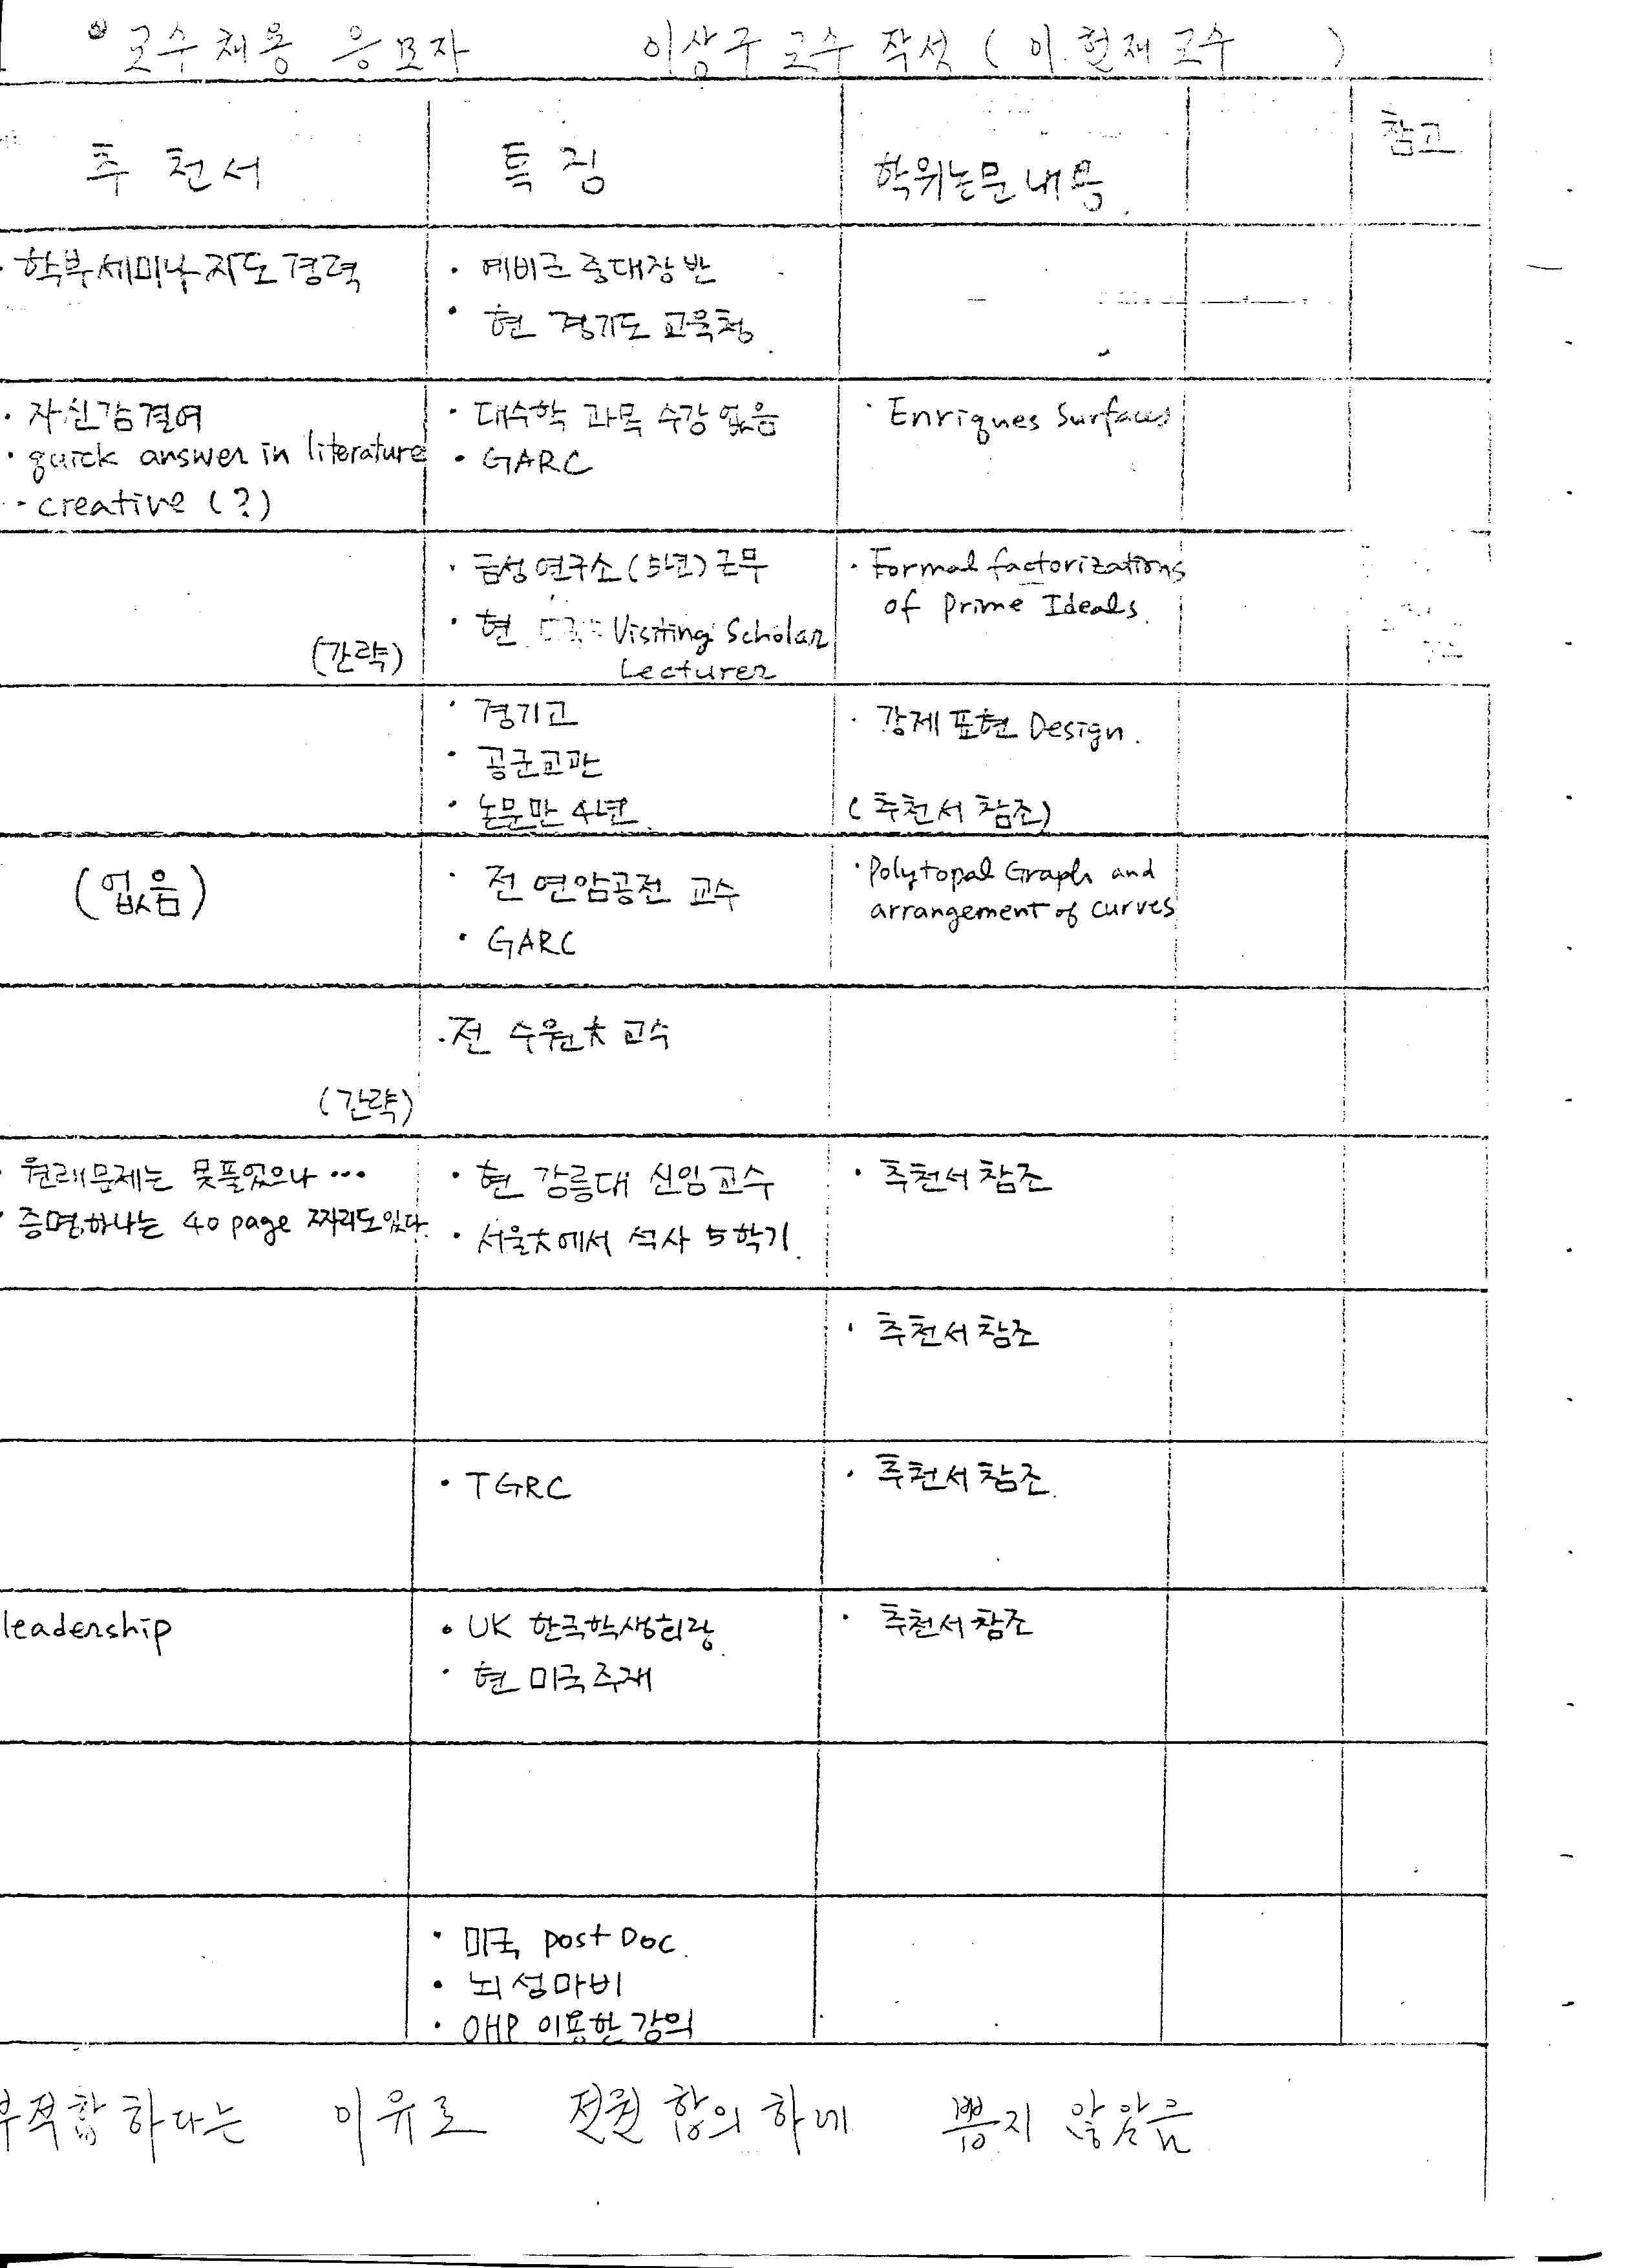 교수채용 응모자 이상구 교수 작성 ( 이.현재 교수 )
추 천 서 특 징 학위논문내용 참고
· 학부세미나지도경력 · 예비군 중대장 반
· 현 경기도 교육청
· 자신감결여 · 대수학 과목 수강 없음 · Enriques Surfaces
· quick answer in literature · GARC
· creative (?)
· 금성연구소(5년)근무 · Formal factorizations
of prime Ideals.
· 현 Visiting Scholar
(간략) Lecturer
· 경기고 · 강제 표현 Design.
· 공군교관
· 논문만 4년 (추천서 참조)
(없음) · 전 연암공전 교수 · Polytopal Graph and
arrangement of curves
· GARC
· 전 수원大 교수
(간략)
· 원래문제는 못풀었으나 ··· · 현 강릉대 신임교수 · 추천서참조
· 증명하나는 40 page 짜리도있다. · 서울大에서 석사 5학기
· 추천서참조
· TGRC · 추천서참조
leadership · UK 한국학생회장 · 추천서참조
· 현 미국주재
· 미국 post Doc.
· 뇌성마비
· OHP 이용한 강의
부적합하다는 이유로 전원 합의하에 뽑지 않았음